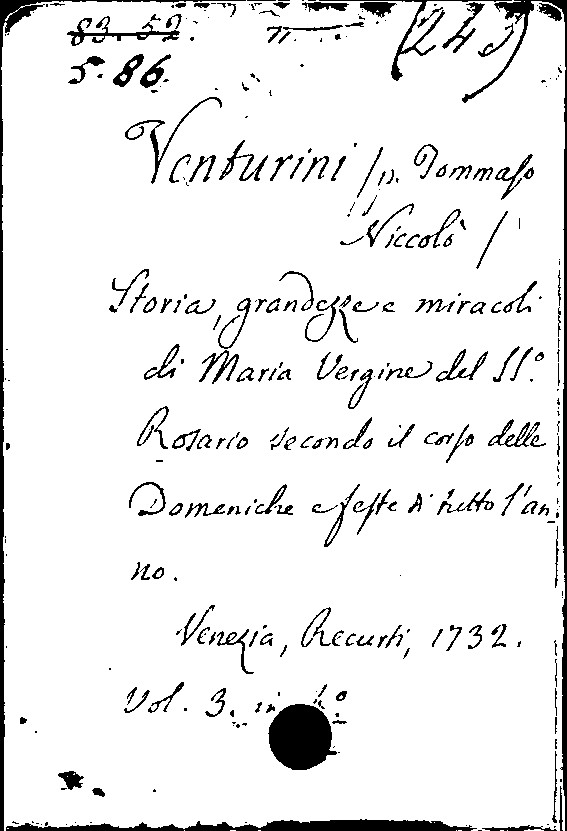 83. 52.
5. 86.
(243)
Venturini /p. Tommaso
Niccolò /
Storia, grandezze e miracoli
di Maria Vergine del SS.º
Rosario secondo il corso delle
Domeniche e feste di tutto l'an_
no.
Venezia, Recurti, 1732.
Vol. 3. in 4.º